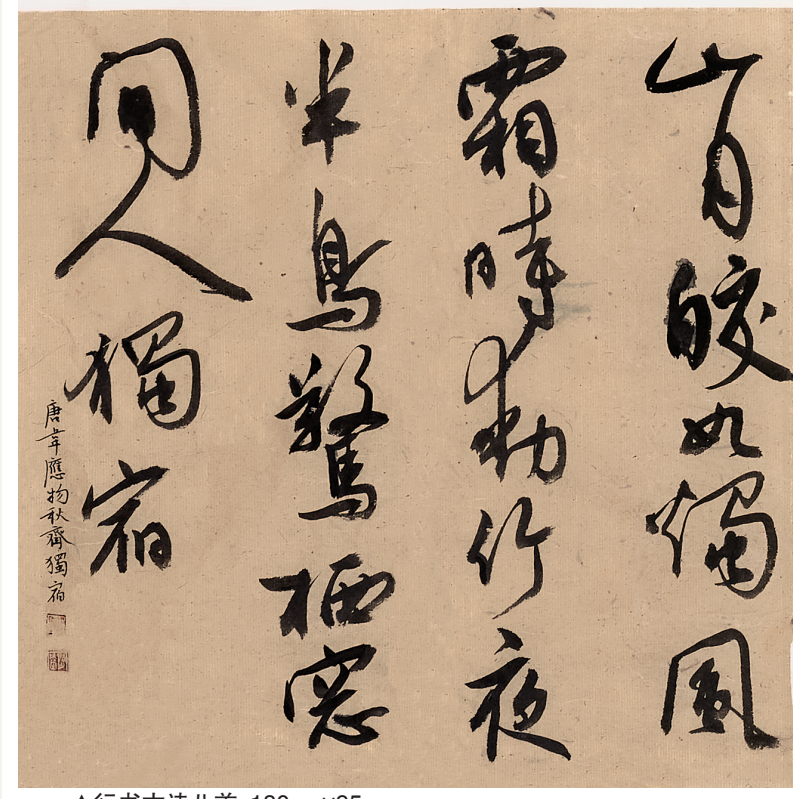 山月皎如燭風
霜時動竹夜
半鳥驚栖窓
間人獨宿
唐韋應物秋齋獨宿